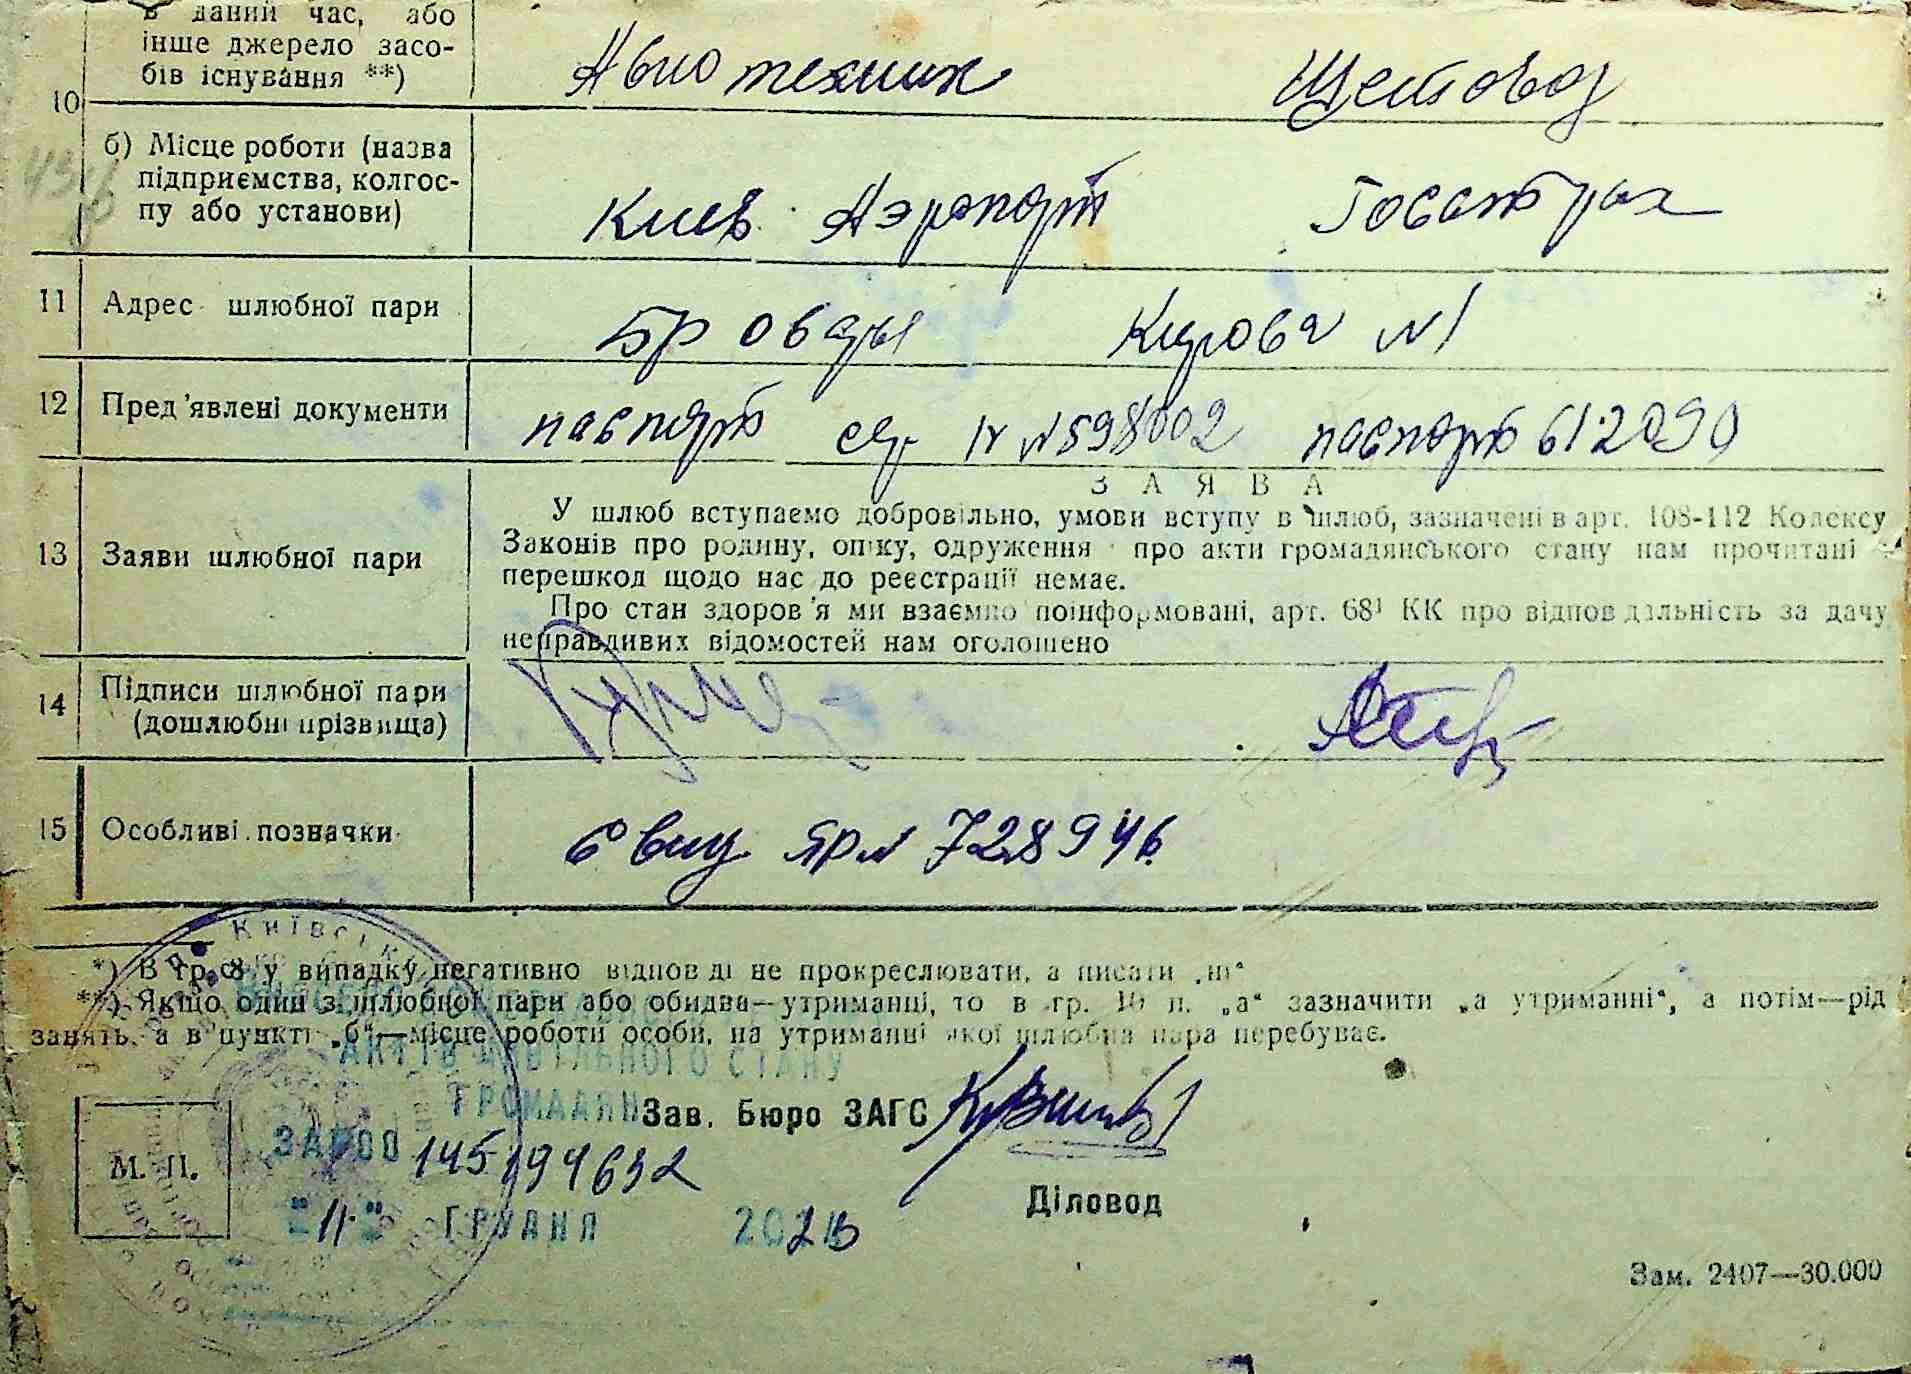 в даний час, або
інше джерело засо-
бів існування **)
Авио техник Щетовод
10
б) Місце роботи (назва
підприємства, колгос-
пу або установи)
Киев Аэропорт Госстрах
11 Адрес шлюбної пари Бровары Кирова №1
12 Пред'явлені документи паспорт сер IV №598002 паспорт 612090
З А Я В А
13 Заяви шлюбної пари
У шлюб вступаємо добровільно, умови вступу в шлюб, зазначені в арт. 108-112 Кодексу
Законів про родину, опіку, одруження про акти громадянського стану нам прочитані
перешкод щодо нас до реєстрації немає.
Про стан здоров'я ми взаємно поінформовані, арт. 68¹ КК про відповідальність за дачу
неправдивих відомостей нам оголошено
14 Підписи шлюбної пари
(дошлюбні прізвища)
15 Особливі позначки Свид ЯР № 728946
*) В гр. 8 у випадку негативно відповіді не прокреслювати, а писати „ні“
**) Якщо один з шлюбної пари або обидва—утриманці, то в гр. 10 п. „а“ зазначити „а утриманні“, а потім—рід
занять, а в пункті „б“—місце роботи особи, на утриманні якої шлюбна пара перебуває.
АКТІВ ЦИВІЛЬНОГО СТАНУ
ГРОМАДЯН
Зав. Бюро ЗАГС
М. П.
145194632
Діловод
"11" ГРУДНЯ 202
Зам. 2407—30.000